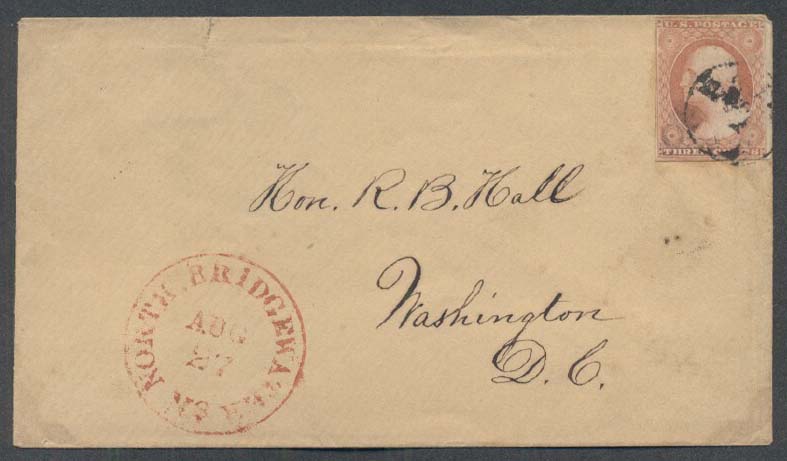 U.S. POSTAGE
THREE CENTS
Hon. R. B. Hall
Washington
D. C.
NORTH BRIDGEWATER MS
AUG
27